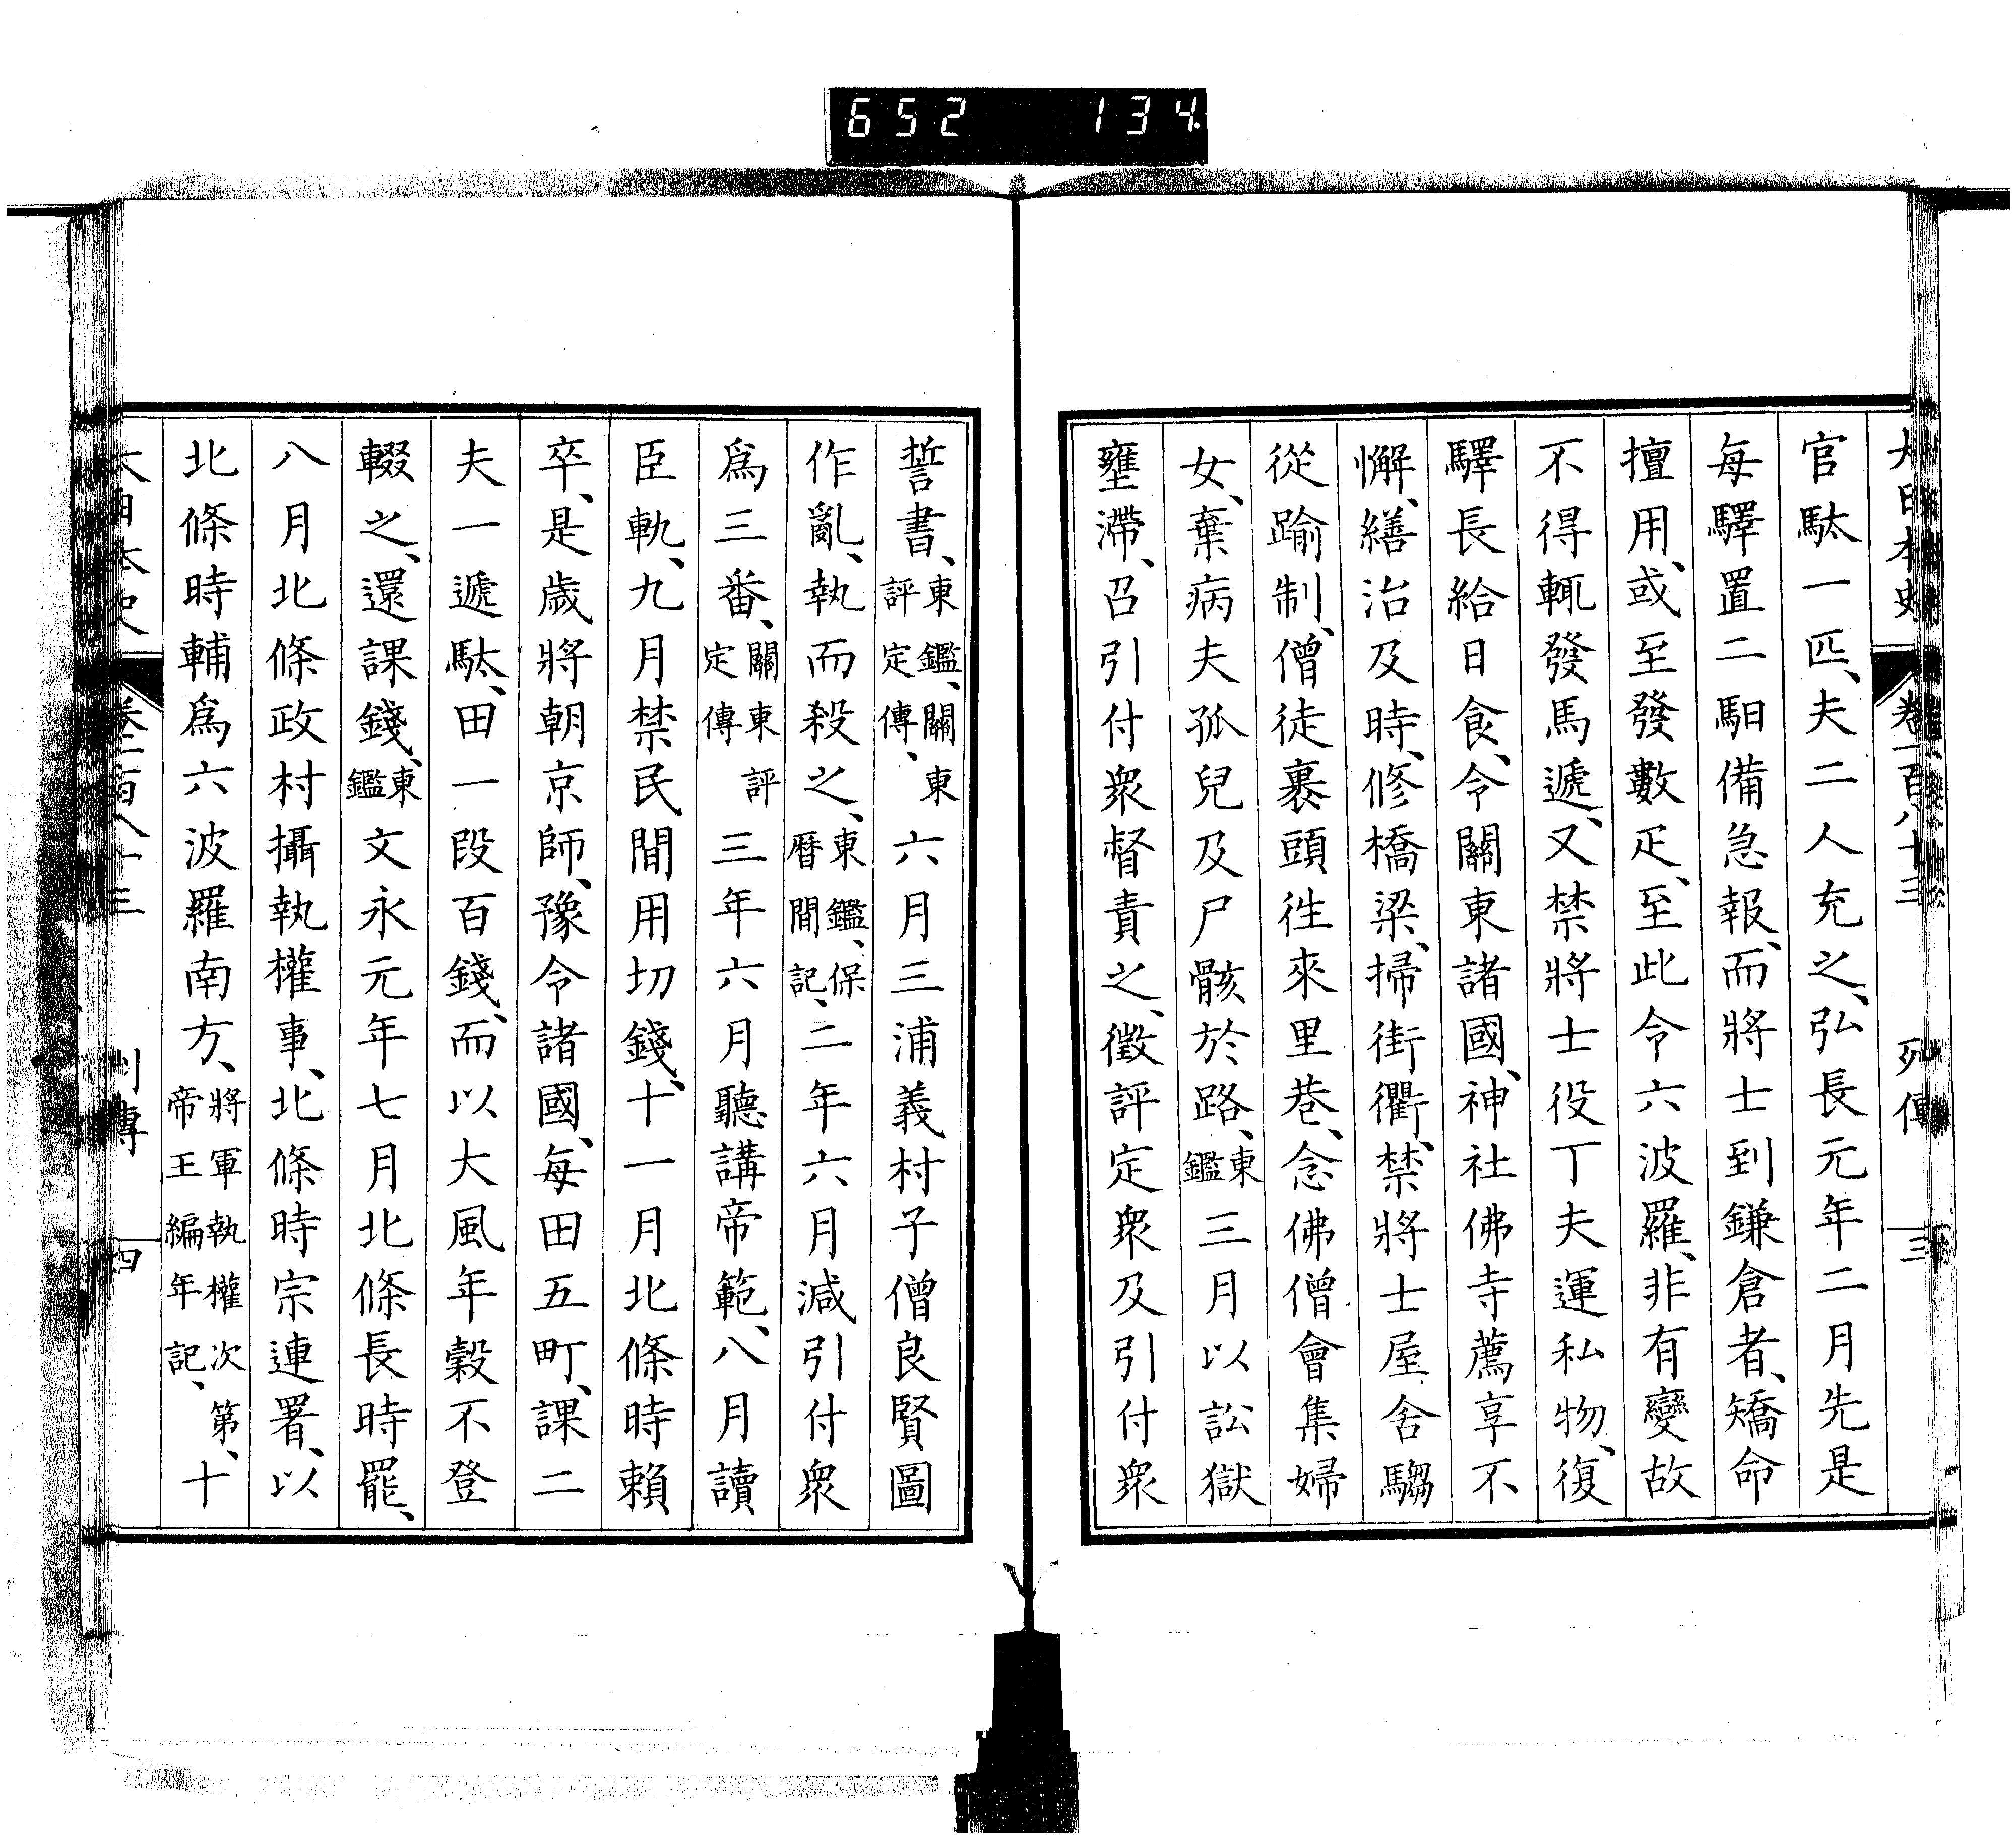 652 134
大日本史 卷一百八十三 列傳 三
官馱一匹、夫二人充之、弘長元年二月先是
每驛置二馹備急報、而將士到鎌倉者、矯命
擅用、或至發數疋、至此令六波羅、非有變故
不得輒發馬遞、又禁將士役丁夫運私物、復
驛長給日食、令關東諸國、神社佛寺薦享不
懈、繕治及時、修橋梁、掃街衢、禁將士屋舍騶
從踰制、僧徒裹頭徃來里巷、念佛僧會集婦
女、棄病夫孤兒及尸骸於路、東鑑三月以訟獄
壅滯、召引付衆督責之、徵評定衆及引付衆
誓書、東鑑、關東評定傳、六月三浦義村子僧良賢圖
作亂、執而殺之、東鑑、保曆間記、二年六月減引付衆
爲三番、關東評定傳三年六月聽講帝範、八月讀
臣軌、九月禁民間用切錢、十一月北條時賴
卒、是歲將朝京師、豫令諸國、每田五町、課二
夫一遞馱、田一段百錢、而以大風年穀不登
輟之、還課錢、東鑑文永元年七月北條長時罷、
八月北條政村攝執權事、北條時宗連署、以
北條時輔爲六波羅南方、將軍執權次第、帝王編年記、十
大日本史 卷一百八十三 列傳 四